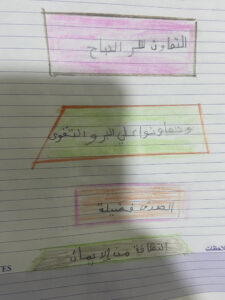 التعاون سر النجاح
وتعاونوا علي البر و التقوى
الصدق فضيلة
النظافة من الايمان
ES